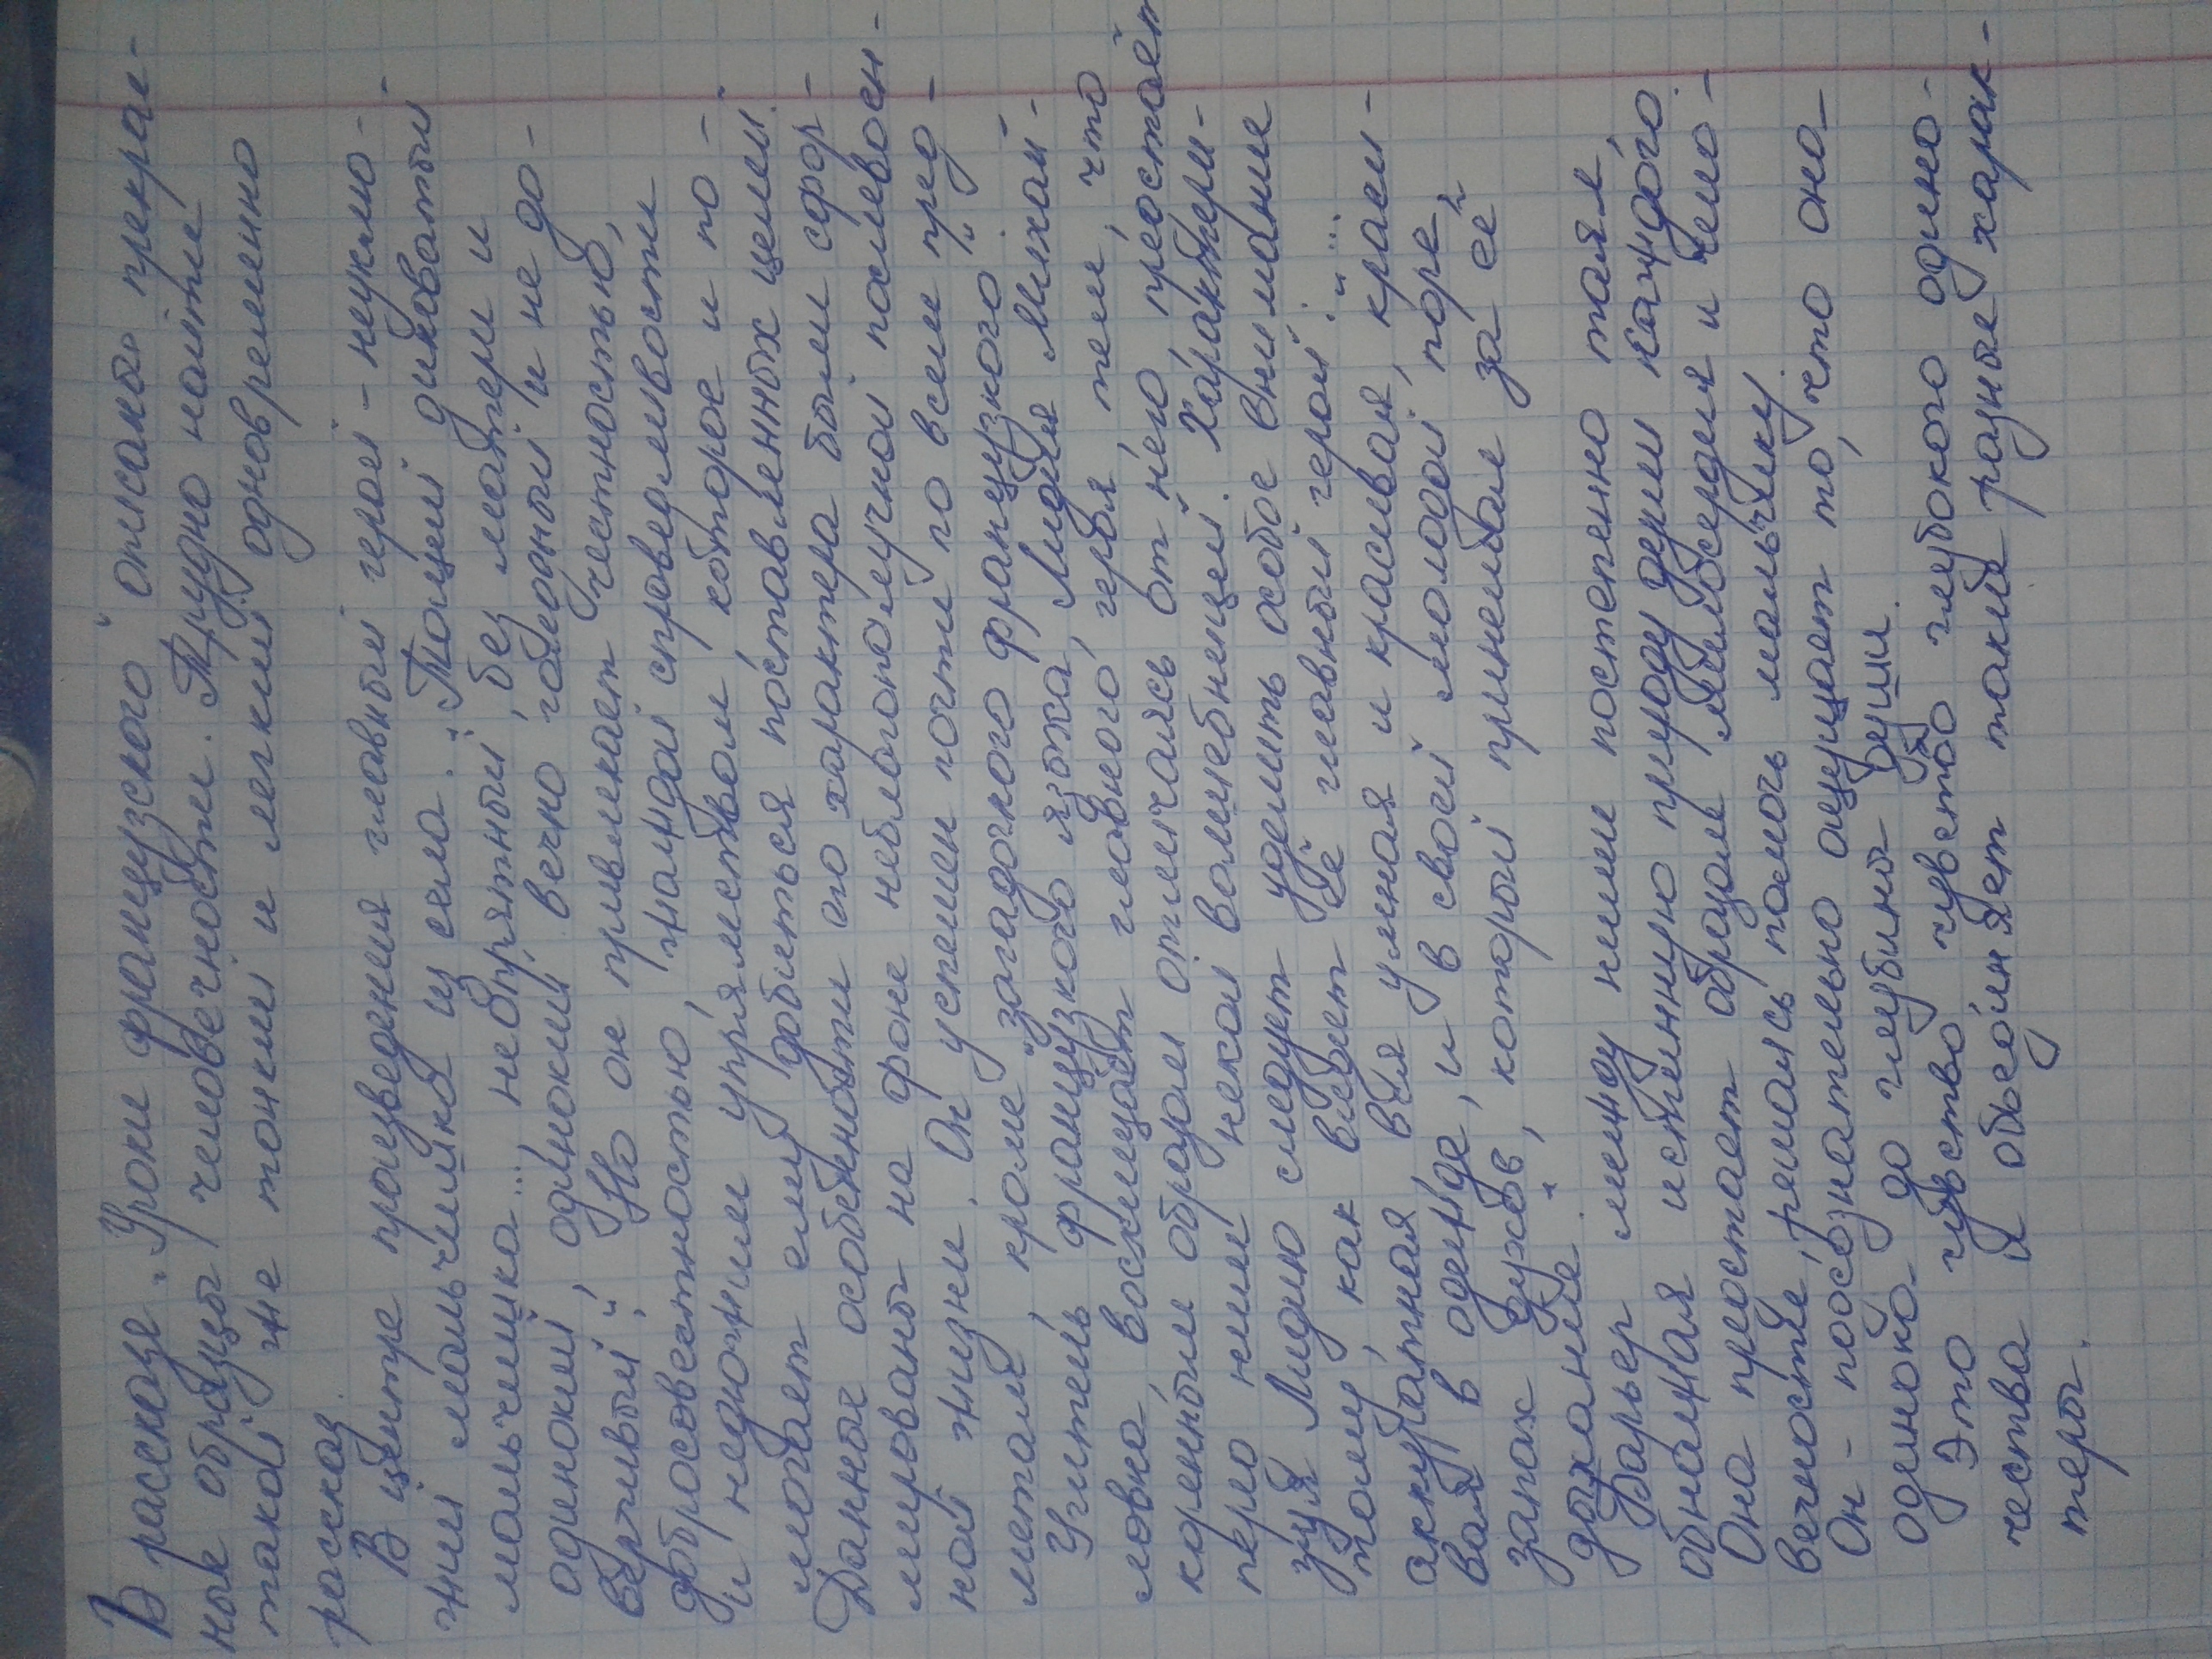 В рассказе "Уроки французского" описаны прекрас-
ные образцы человечности. Трудно найти
такой же тонкий и легкий одновременно
рассказ.
В центре произведения главный герой - неуклю-
жий мальчишка из села. "Тощий диковатый
мальчишка... неопрятный, без матери и
одинокий, одинокий, вечно голодный и не до-
верчивый". Но он привлекает честностью,
добросовестностью, жаждой справедливости
и недюжим упрямством, которое и по-
могает ему добиться поставленных целей.
Данные особенности его характера были сфор-
мированы на фоне неблагополучной послевоен-
ной жизни. Он успешен почти по всем пред-
метам, кроме "загадочного французкого".
Учитель французкого языка, Лидия Михай-
ловна, восхищает главного героя тем, что
коренным образом отличаясь от него, предстаёт
перед ним некой волшебницей. Характери-
зуя Лидию следует уделить особое внимание
тому, как видит её главный герой: "...
аккуратная, вся умная и красивая, краси-
вая в одежде, и в своей молодой поре,
запах духов, который принимал за её
дыхание".
Барьер между ними постепенно таял,
обнажая истинную природу души каждого.
Она предстает образом милосердия и чело-
вечности, решаясь помочь мальчику.
Он - подсознательно ощущает то, что она-
одинока до глубины души.
Это чувство чувство глубокого одино-
чества и объединяет такие разные харак-
теры.